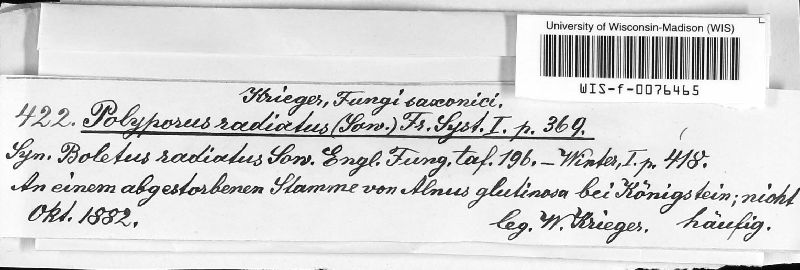 University of Wisconsin-Madison (WIS)
WIS-f-0076465
Krieger, Fungi saxonici.
422. Polyporus radiatus (Sow.) Fr. Syst. I. p. 369.
Syn. Boletus radiatus Sow. Engl. Fung. taf. 196. – Winter, I. p. 418.
An einem abgestorbenen Stamme von Alnus glutinosa bei Königstein; nicht häufig.
Okt. 1882. leg. W. Krieger.